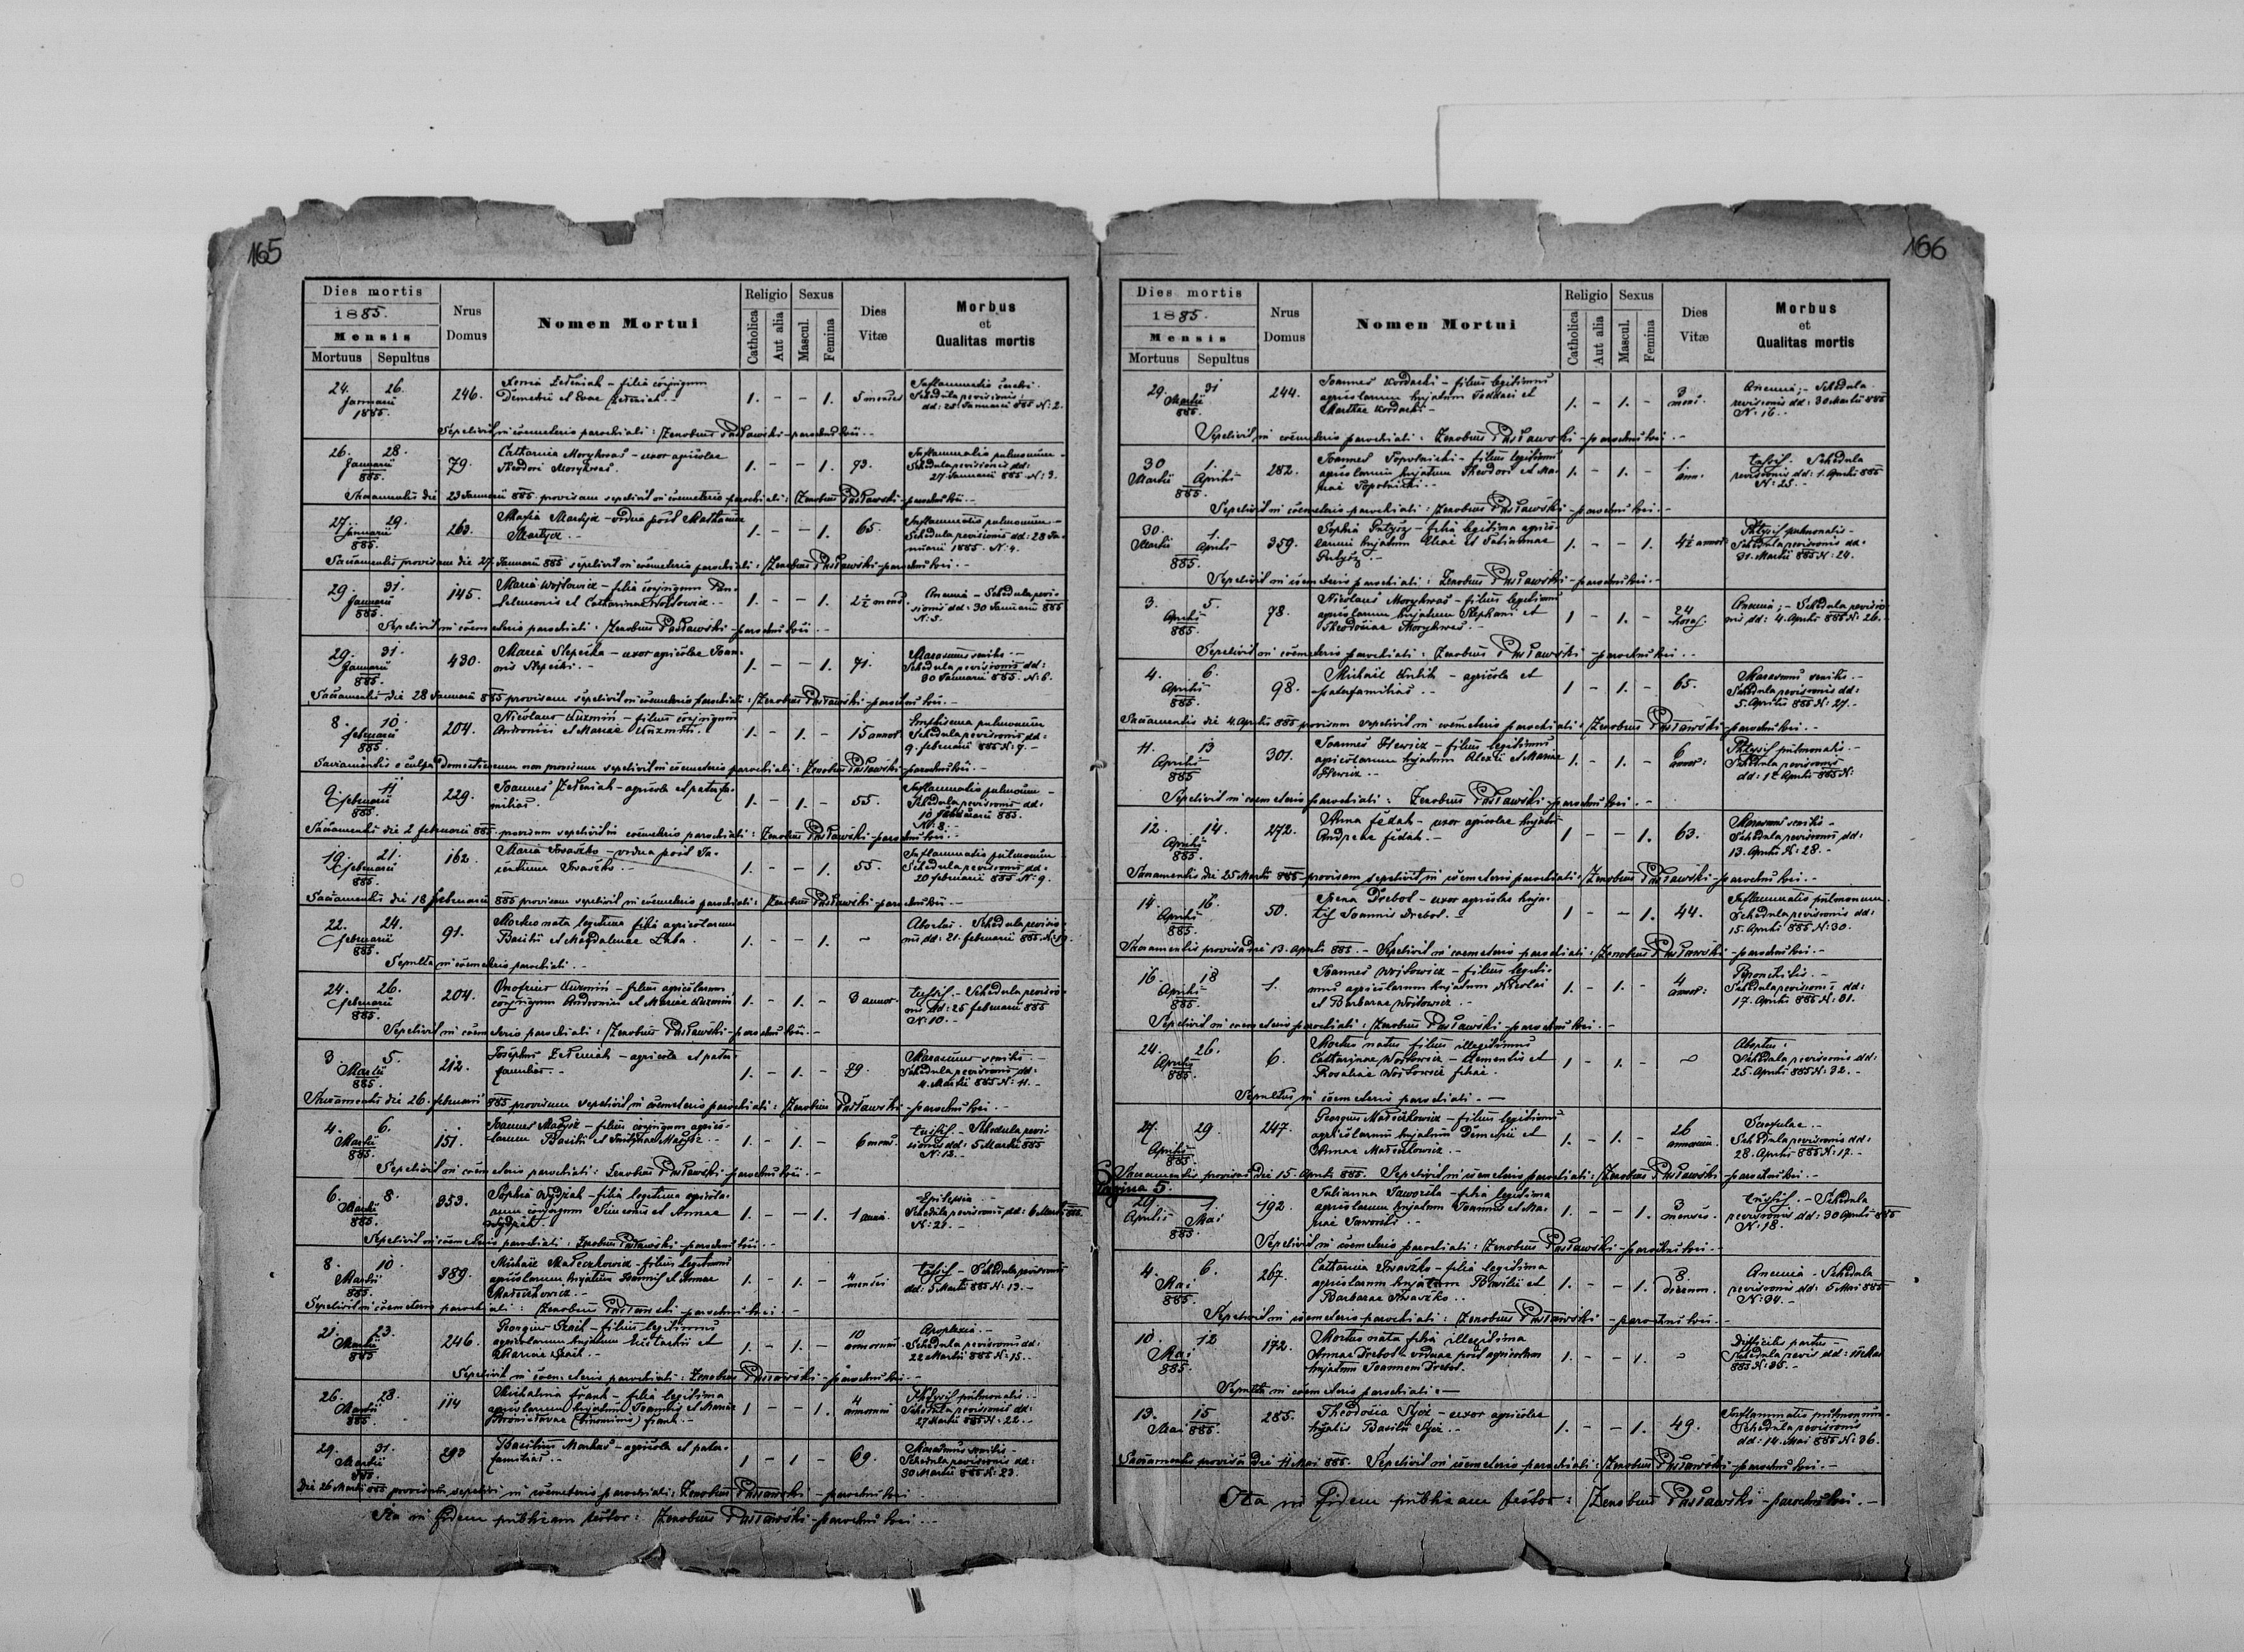 165
Dies mortis
1885.
Mensis
Mortuus Sepultus
Nrus Domus
Nomen Mortui
Religio
Catholica
Aut alia
Sexus
Mascul.
Femina
Dies Vitæ
Morbus
et
Qualitas mortis
24. 26. Januarii 1885. 246. filia conjugum 1. - - 1. 5 menses Inflammatio cerebri.
Demetrii et Evae Schedula revisionis
dd: Januarii 885 N: 2.
Sepelivit in coemeterio parochiali: Zenobius Pasławski - parochus loci. -
26. 28. Januarii 885. 79. Catharina - uxor agricolae 1. - - 1. 73. Inflammatio pulmonum -
Theodori Schedula revisionis dd:
27 Januarii 885. N: 3.
Sacramentis die 23 Januarii 885. provisam sepelivit in coemeterio parochiali: Zenobius Pasławski - parochus loci. -
27. 29. Januarii 885. 263. Maria - vidua post 1. - - 1. 65. Inflammatio pulmonum -
Schedula revisionis dd: 28 Ja-
nuarii 1885. N: 4.
Sacramentis provisam die 27 Januarii 885 sepelivit in coemeterio parochiali: Zenobius Pasławski - parochus loci. -
29. 31. Januarii 885. 145. Maria Wojtowicz - filia conjugum Pan- 1. - - 1. 2½ mens. Anemia - Schedula revi-
teleimonis et Catharinae Wojtowicz. - sionis dd: 30 Januarii 885
N: 5.
Sepelivit in coemeterio parochiali: Zenobius Pasławski - parochus loci. -
29. 31. Januarii 885. 430. Maria - uxor agricolae Joan- 1. - - 1. 71. Marasmus senilis. -
nis Schedula revisionis dd:
30 Januarii 885. N: 6.
Sacramentis die 28 Januarii 885 provisam sepelivit in coemeterio parochiali: Zenobius Pasławski - parochus loci. -
8. 10. februarii 885. 204. Nicolaus Kuzmin - filius conjugum 1. - 1. - 15 annor. pulmonum
Andronici et Mariae Kuzmin. Schedula revisionis dd:
9. februarii 885 N: 7. -
Sacramentis e culpa domesticorum non provisum sepelivit in coemeterio parochiali: Zenobius Pasławski - parochus loci. -
9. 11. februarii 885. 229. Joannes - agricola et paterfa- 1. - 1. - 55. Inflammatio pulmonum -
milias. Schedula revisionis dd:
10 februarii 885.
N: 8.
Sacramentis die 2 februarii 885. provisum sepelivit in coemeterio parochiali: Zenobius Pasławski - parochus loci. -
19. 21. februarii 885. 162. Maria Iwaszko - vidua post 1. - - 1. 55. Inflammatio pulmonum
Iwaszko. - Schedula revisionis dd:
20 februarii 885 N: 9.
Sacramentis die 18 februarii 885 provisam sepelivit in coemeterio parochiali: Zenobius Pasławski - parochus loci. -
22. 24. februarii 885. 91. Mortuo nata legitima filia agricolarum 1. - - 1. - Abortus. Schedula revisio-
Basilii et Magdalenae nis dd: 21. februarii 885.
Sepulta in coemeterio parochiali. -
24. 26. februarii 885. 204. Onofrius Kuzmin - filius agricolarum 1. - 1. - 3 annor. tussis. - Schedula revisio-
conjugum Andronici et Mariae Kuzmin nis dd: 25 februarii 885
N: 10. -
Sepelivit in coemeterio parochiali: Zenobius Pasławski - parochus loci. -
3. 5. Martii 885. 212. Josephus - agricola et pater- 1. - 1. - 79. Marasmus senilis. -
familias. - Schedula revisionis dd:
4. Martii 885 N: 11. -
Sacramentis die 26. februarii 885 provisum sepelivit in coemeterio parochiali: Zenobius Pasławski - parochus loci. -
4. 6. Martii 885. 151. Joannes - filius conjugum agrico- 1. - 1. - 6 mens. tussis - Schedula revi-
larum Basilii et sionis dd: 5 Martii 885
N: 12. -
Sepelivit in coemeterio parochiali: Zenobius Pasławski - parochus loci. -
6. 8. Martii 885. 353. Sophia - filia legitima agricola- 1. - - 1. 1 anni. Epilepsia. -
rum conjugum Simeonis et Annae Schedula revisionis dd: 6 Martii 885.
N: 21. -
Sepelivit in coemeterio parochiali: Zenobius Pasławski - parochus loci. -
8. 10. Martii 885. 389. Michael - filius legitimus 1. - 1. - 4 menses tussis - Schedula revisionis
agricolarum hujatum Joannis et Annae dd: Martii 885 N: 13. -
Sepelivit in coemeterio parochiali: Zenobius Pasławski - parochus loci -
21. 23. Martii 885 246. Georgius - filius legitimus 1. - 1. - 10 annorum Apoplexia. -
agricolarum hujatum Eustachii et Schedula revisionis dd:
Mariae 22 Martii 885 N: 15. -
Sepelivit in coemeterio parochiali: Zenobius Pasławski - parochus loci. -
26. 28. Martii 885. 114 Michalina Frank - filia legitima 1 - - 1. 4 annorum Phtysis pulmonalis. -
agricolarum hujatum Joannis et Mariae Schedula revisionis dd:
(binominis) Frank. - 27 Martii 885 N: 22. -
29. 31. Martii 885. 293 Basilius Markus - agricola et pater- 1 - 1 - 69. Marasmus senilis -
familias. - Schedula revisionis dd:
30 Martii 885 N: 23.
Die 26 Martii 885 provisum sepelivit in coemeterio parochiali: Zenobius Pasławski - parochus loci.
Ita in fidem publicam testor: Zenobius Pasławski - parochus loci. -
166
Dies mortis
1885.
Mensis
Mortuus Sepultus
Nrus Domus
Nomen Mortui
Religio
Catholica
Aut alia
Sexus
Mascul.
Femina
Dies Vitæ
Morbus
et
Qualitas mortis
29. 31 Martii 885. 244. Joannes - filius legitimus 1. - 1. - 3 mens. Anemia; - Schedula
agricolarum hujatum et revisionis dd: 30 Martii 885
Marthae N: 16. -
Sepelivit in coemeterio parochiali: Zenobius Pasławski - parochus loci. -
30 Martii 1. Aprilis 885. 282. Joannes Topolnicki - filius legitimus 1. - 1. - 1. ann. tussis. Schedula
agricolarum hujatum Theodori et Ma- revisionis dd: 1. Aprilis 885
riae Topolnicki. - N: 25. -
Sepelivit in coemeterio parochiali: Zenobius Pasławski - parochus loci. -
30. Martii 1. Aprilis 885. 359. Sophia - filia legitima agrico- 1. - - 1. 4½ annor. Phtysis pulmonalis -
larum hujatum Eliae et Schedula revisionis dd:
31. Martii 885 N: 24.
Sepelivit in coemeterio parochiali: Zenobius Pasławski - parochus loci. -
3. 5. Aprilis 885. 78. Nicolaus - filius legitimus 1 - 1. - 24 horas. Anemia; - Schedula revisio-
agricolarum hujatum Stephani et nis dd: 4. Aprilis 885 N: 26. -
Theodosiae
Sepelivit in coemeterio parochiali: Zenobius Pasławski - parochus loci. -
4. 6. Aprilis 885. 98. Michael - agricola et 1 - 1. - 65. Marasmus senilis. -
paterfamilias. - Schedula revisionis dd:
5. Aprilis 885 N: 27. -
Sacramentis die 4. Aprilis 885 provisum sepelivit in coemeterio parochiali: Zenobius Pasławski - parochus loci. -
11. 13 Aprilis 885 301. Joannes Ilewicz - filius legitimus 1. - 1. - 6 annor: Phtysis pulmonalis. -
agricolarum hujatum Alexii et Mariae Schedula revisionis
Ilewicz. - dd: 12 Aprilis 885 N:
Sepelivit in coemeterio parochiali: Zenobius Pasławski - parochus loci. -
12. 14. Aprilis 885. 272. Anna Fedak - uxor agricolae 1 - - 1. 63. Marasmus senilis -
Andreae Fedak. - Schedula revisionis dd:
13. Aprilis N: 28. -
Sacramentis die 25 Martii 885 provisam sepelivit in coemeterio parochiali: Zenobius Pasławski - parochus loci. -
14. 16. Aprilis 885. 50. Irena Drebot - uxor agricolae huja- 1 - - 1. 44. Inflammatio pulmonum.
tis Joannis Drebot. - Schedula revisionis dd:
15. Aprilis 885 N: 30.
Sacramentis provisa die 13. Aprilis 885. - Sepelivit in coemeterio parochiali: Zenobius Pasławski - parochus loci. -
16. 18 Aprilis 885. 1. Joannes Wojtowicz - filius legiti- 1. - 1. - 4 annor: Bronchitis. -
mus agricolarum hujatum Nicolai Schedula revisionis dd:
et Barbarae Wojtowicz. - 17. Aprilis 885 N: 31.
Sepelivit in coemeterio parochiali: Zenobius Pasławski - parochus loci. -
24. 26. Aprilis 885. 6. Mortuo natus filius illegitimus 1 - 1. - Abortus:
Catharinae Wojtowicz - Clementii et Schedula revisionis dd:
Rosaliae Wojtowicz filiae. 25. Aprilis 885 N: 32. -
Sepultus in coemeterio parochiali. -
27. 29. Aprilis 885 247. Georgius - filius legitimus 1. - 1. - 26 annorum.
agricolarum hujatum Demetrii et Schedula revisionis dd:
Annae 28. Aprilis 885 N: 17. -
Sacramentis provisus die 15. Aprilis 885. Sepelivit in coemeterio parochiali: Zenobius Pasławski - parochus loci. -
Pagina 5.
29. Aprilis 1. Mai 885. 192. Julianna - filia legitima 1. - - 1. 3 menses. tussis. - Schedula
agricolarum hujatum Joannis et Ma- revisionis dd: 30 Aprilis 885
riae N: 18.
Sepelivit in coemeterio parochiali: Zenobius Pasławski - parochus loci. -
4. 6. Mai 885. 267. Catharina Iwaszko - filia legitima 1. - - 1. 8. dierum. Anemia - Schedula
agricolarum hujatum Basilii et revisionis dd: 5 Mai 885
Barbarae Iwaszko. - N: 34. -
Sepelivit in coemeterio parochiali: Zenobius Pasławski - parochus loci. -
10. 12 Mai 885. 172. Mortuo nata filia illegitima 1. - - 1. Difficilis partus -
Annae Drebot - viduae post agricolam Schedula revis dd: Mai
hujatem Joannem Drebot. 885 N: 35. -
Sepulta in coemeterio parochiali. -
13. Mai 15 885. 285. Theodosia - uxor agricolae 1. - - 1. 49. Inflammatio pulmonum -
hujatis Basilii Schedula revisionis
dd: 14. Mai 885 N: 36.
Sacramentis provisa die 11 Mai 885. Sepelivit in coemeterio parochiali: Zenobius Pasławski - parochus loci. -
Ita in fidem publicam testor: Zenobius Pasławski - parochus loci. -